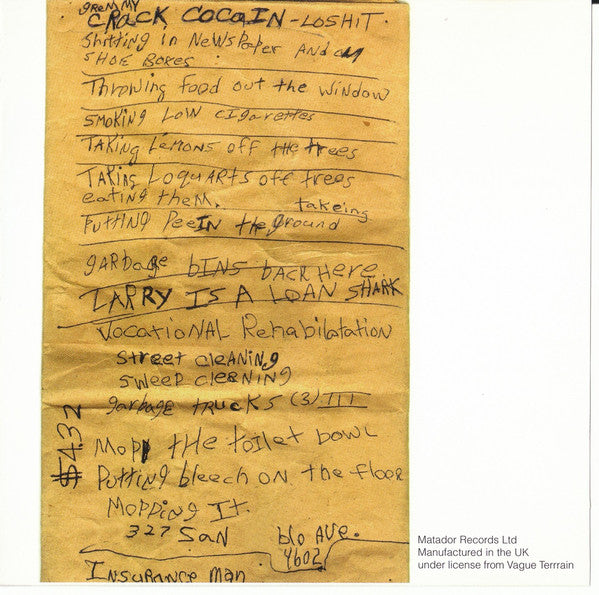 GREN MY
CRACK COCAIN - LOSHIT.
Shitting in NewSPaper And
SHOE BOXES
Throwing food out the window
SMOKING LOW CIGarettes
TAKING LEMONS OFF tHE trees
TAKING LOQUARTS OFF trees
eating theM.
takeing
PUTTING PeeIN the ground
gARbage bINS bACK Here
LARRY IS A LOAN SHARK
VOCATIONAL Rehabilatation
Street cleANiNg
SWEEP CLEANING
garbage trucks (3) III
$432
Mopp tHe toilet bowl
Putting bleech ON the flooR
MOPPING It.
327 SaN blo AVe.
4602
INSURANCE MAN
Matador Records Ltd
Manufactured in the UK
under license from Vague Terrrain